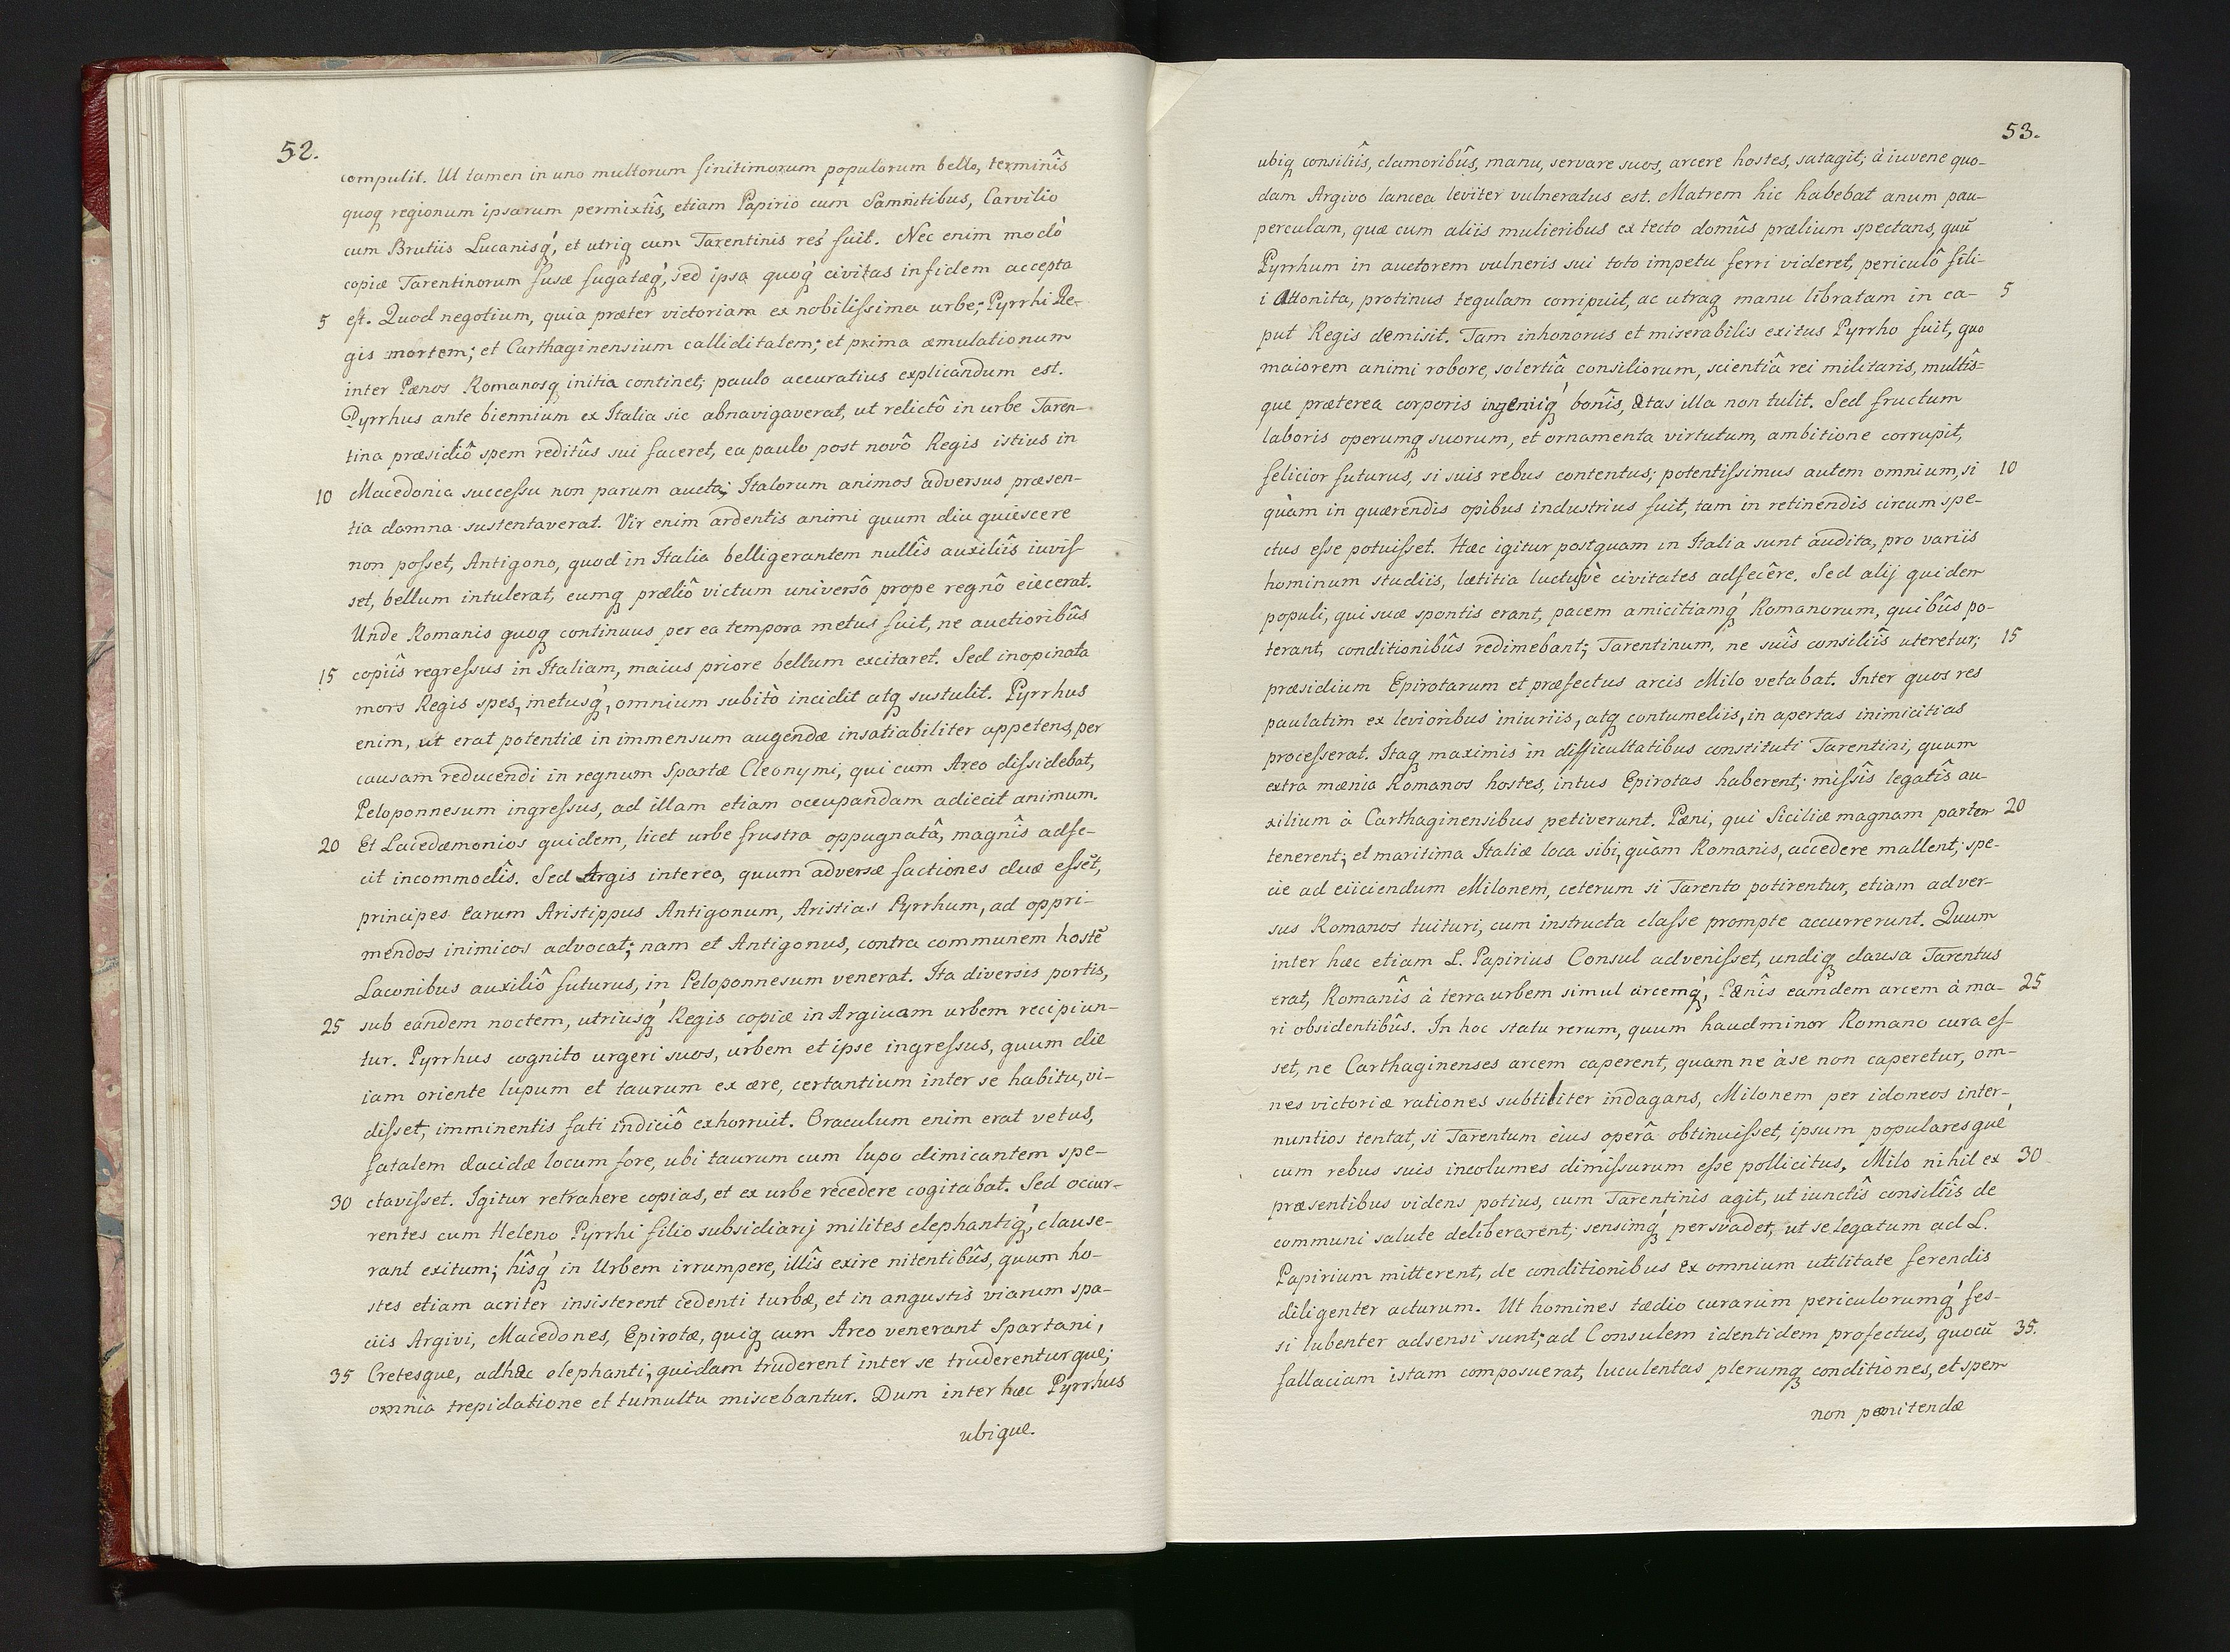 52.
compulit. Ut tamen in uno multorum finitimorum populorum bello, terminîs
quoq regionum ipsarum permixtîs, etiam Papirio cum Samnitibus, Carvilio
cum Brutiis Lucanisq́, et utriq cum Tarentinis res fuit. Nec enim modò
copiæ Tarentinorum fusæ fugatæq́, sed ipsa quoq́ civitas in fidem accepta
5 est. Quod negotium, quia præter victoriam ex nobilissima urbe; Pyrrhi Re-
gis mortem; et Carthaginensium calliditatem; et prima æmulationum
inter Pænos Romanosq initia continet; paulo accuratius explicandum est.
Pyrrhus ante biennium ex Italia sic abnavigaverat, ut relictô in urbe Taren-
tina præsidiô spem reditûs sui faceret, ea paulo post novô Regis istius in
10 Macedonia successu non parum aucta; Italorum animos adversus præsen-
tia damna sustentaverat. Vir enim ardentis animi quum diu quiescere
non posset, Antigono, quod in Italia belligerantem nullîs auxiliîs iuvis-
set, bellum intulerat, eumq præliô victum universô prope regnô eiecerat.
Unde Romanis quoq continuus per ea tempora metus fuit, ne auctioribûs
15 copiîs regressus in Italiam, maius priore bellum excitaret. Sed inopinata
mors Regis spes, metusq́, omnium subitò incidit atq sustulit. Pyrrhus
enim, ut erat potentiæ in immensum augendæ insatiabiliter appetens, per
causam reducendi in regnum Spartæ Cleonymi, qui cum Areo dissidebat,
Peloponnesum ingressus, ad illam etiam occupandam adiecit animum.
20 Et Lacedæmonios quidem, licet urbe frustra oppugnatâ, magnîs adfe-
cit incommodîs. Sed Argis interea, quum adversæ factiones duæ essēt,
principes earum Aristippus Antigonum, Aristias Pyrrhum, ad oppri-
mendos inimicos advocat; nam et Antigonus, contra communem hostē
Laconibus auxiliô futurus, in Peloponnesum venerat. Ita diversis portis,
25 sub eandem noctem, utriusq́ Regis copiæ in Argiuam urbem recipiun-
tur. Pyrrhus cognito urgeri suos, urbem et ipse ingressus, quum die
iam oriente lupum et taurum ex ære, certantium inter se habitu, vi-
disset, imminentis fati indiciô exhorruit. Oraculum enim erat vetus,
fatalem æacidæ locum fore, ubi taurum cum lupo dimicantem spe-
30 ctavisset. Igitur retrahere copias, et ex urbe recedere cogitabat. Sed occur-
rentes cum Heleno Pyrrhi filio subsidiarij milites elephantiq́, clause-
rant exitum; hîsq́ in Urbem irrumpere, illîs exire nitentibûs, quum ho-
stes etiam acriter insisterent cedenti turbæ, et in angustis viarum spa-
ciis Argivi, Macedones, Epirotæ, quiq cum Areo venerant Spartani,
35 Cretesque, adhæc elephanti, quidam truderent inter se truderenturque;
omnia trepidatione et tumultu miscebantur. Dum inter hæc Pyrrhus
ubique.
53.
ubiq consiliîs, clamoribûs, manu, servare suos, arcere hostes, satagit; à iuvene quo-
dam Argivo lancea leviter vulneratus est. Matrem hic habebat anum pau-
perculam, quæ cum aliis mulieribus ex tecto domûs prælium spectans, quū
Pyrrhum in auctorem vulneris sui toto impetu ferri videret, periculô fili-
i attonita, protinus tegulam corripuit, ac utraq manu libratam in ca- 5
put Regis demisit. Tam inhonorus et miserabilis exitus Pyrrho fuit, quo
maiorem animi robore, solertiâ consiliorum, scientiâ rei militaris, multîs=
que præterea corporis ingeniiq́ bonîs, ætas illa non tulit. Sed fructum
laboris operumq suorum, et ornamenta virtutum, ambitione corrupit,
felicior futurus, si suis rebus contentus; potentissimus autem omnium, si 10
quàm in quærendis opibus industrius fuit, tam in retinendis circumspe-
ctus esse potuisset. Hæc igitur postquam in Italia sunt audita, pro variis
hominum studiis, lætitia luctuṣvè civitates adfecêre. Sed alij quidem
populi, qui suæ spontis erant, pacem amicitiamq́ Romanorum, quibûs po-
terant, conditionibûs redimebant; Tarentinum, ne suîs consiliîs uteretur; 15
præsidium Epirotarum et præfectus arcis Milo vetabat. Inter quos res
paulatim ex levioribus iniuriis, atq contumeliis, in apertas inimicitias
processerat. Itaq maximis in difficultatibus constituti Tarentini, quum
extra mænia Romanos hostes, intus Epirotas haberent; missîs legatîs au-
xilium à Carthaginensibus petiverunt. Pæni, qui Siciliæ magnam partem 20
tenerent; et maritima Italiæ loca sibi, quàm Romanis, accedere mallent; spe-
cie ad eiiciendum Milonem, ceterum si Tarento potirentur, etiam adver-
sus Romanos tuituri, cum instructa classe prompte accurrerunt. Quum
inter hæc etiam L. Papirius Consul advenisset, undiq clausa Tarentus
erat, Romanîs à terra urbem simul arcemq́, Pænîs eamdem arcem à ma- 25
ri obsidentibûs. In hoc statu rerum, quum haud minor Romano cura es-
set, ne Carthaginenses arcem caperent, quam ne à se non caperetur, om-
nes victoriæ rationes subtiliter indagans, Milonem per idoneos inter-
nuntios tentat, si Tarentum eius operâ obtinuisset, ipsum popularesque
cum rebus suis incolumes dimissurum esse pollicitus. Milo nihil ex 30
præsentibus videns potius, cum Tarentinis agit, ut iunctîs consiliîs de
communi salute deliberarent; sensimq́ persvadet, ut se legatum ad L.
Papirium mitterent, de conditionibus ex omnium utilitate ferendis
diligenter acturum. Ut homines tædio curarum periculorumq́ fes-
si lubenter adsensi sunt; ad Consulem identidem profectus, quocū 35.
fallaciam istam composuerat, luculentas plerumq conditiones, et spem
non pænitendæ